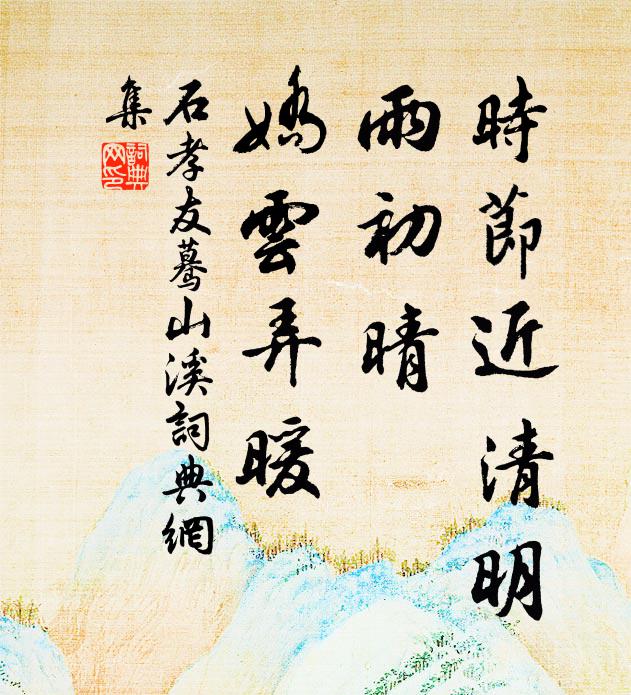 時節近清明
雨初晴
嬌雲弄暖
石孝友驀山溪詞典網
集
詞典
网